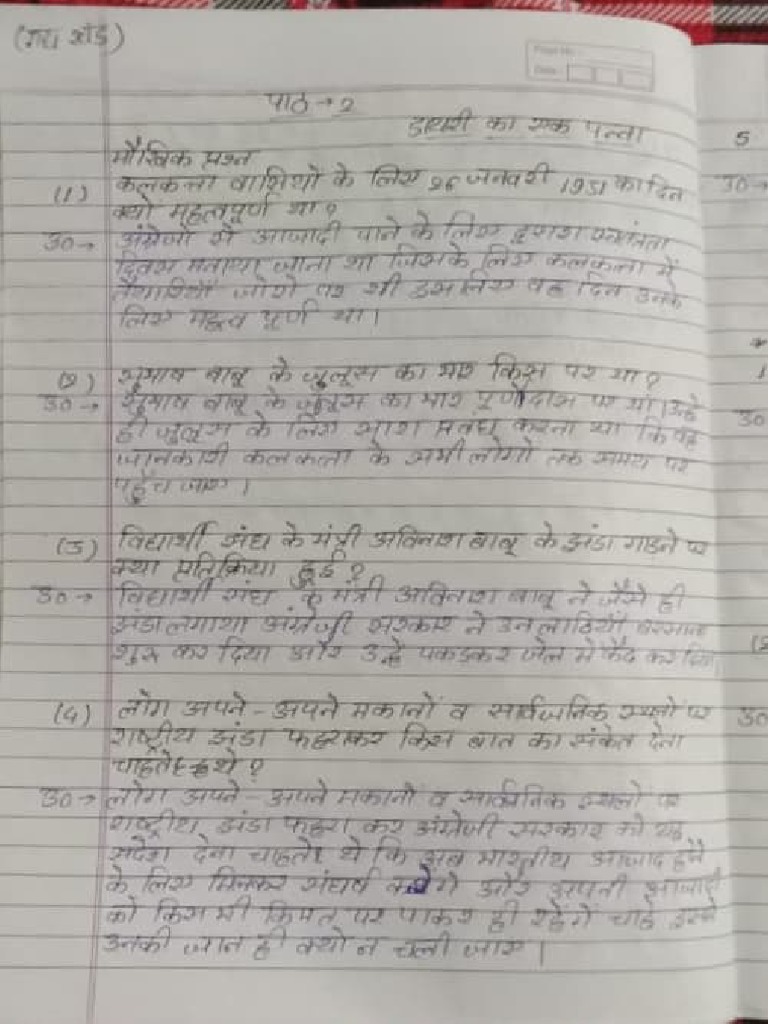 (गद्य खंड)
Page No.
Date
पाठ → 2
डायरी का एक पन्ना
मौखिक प्रश्न
(1) कलकत्ता वाशियों के लिए 26 जनवरी 1931 का दिन
क्यों महत्वपूर्ण था ?
उ0→ अंग्रेजों से आजादी पाने के लिए दूसरा स्वतंत्रता
दिवस मनाया जाना था जिसके लिए कलकत्ता में
तैयारियाँ जोरो पर थी इसलिए वह दिन उनके
लिए महत्व पूर्ण था।
(2) सुभाष बाबू के जुलूस का भार किस पर था ?
उ0→ सुभाष बाबू के जुलूस का भार पूर्णोदास पर था। उन्हे
ही जुलूस के लिए सारा प्रबंध करना था कि यह
जानकारी कलकत्ता के सभी लोगो तक समय पर
पहुँच जाए।
(3) विद्यार्थी संघ के मंत्री अविनाश बाबू के झंडा गाड़ने पर
क्या प्रतिक्रिया हुई ?
उ0→ विद्यार्थी संघ के मंत्री अविनाश बाबू ने जैसे ही
झंडा लगाया अंग्रेजी सरकार ने उन लाठियाँ बरसाना
शुरू कर दिया और उन्हे पकडकर जेल में कैद कर दिया
(4) लोग अपने-अपने मकानों व सार्वजनिक स्थलों पर
राष्ट्रीय झंडा फहराकर किस बात का संकेत देना
चाहते थे ?
उ0→ लोग अपने-अपने मकानो व सार्वजनिक स्थलो पर
राष्ट्रीय झंडा फहरा कर अंग्रेजी सरकार को यह
संदेश देना चाहते थे कि अब भारतीय आजाद होने
के लिए मिलकर संघर्ष करेंगे और अपनी आजादी
को किस भी किमत पर पाकर ही रहेंगे चाहे इसमें
उनकी जान ही क्यो न चली जाए।
5
30→
30
30